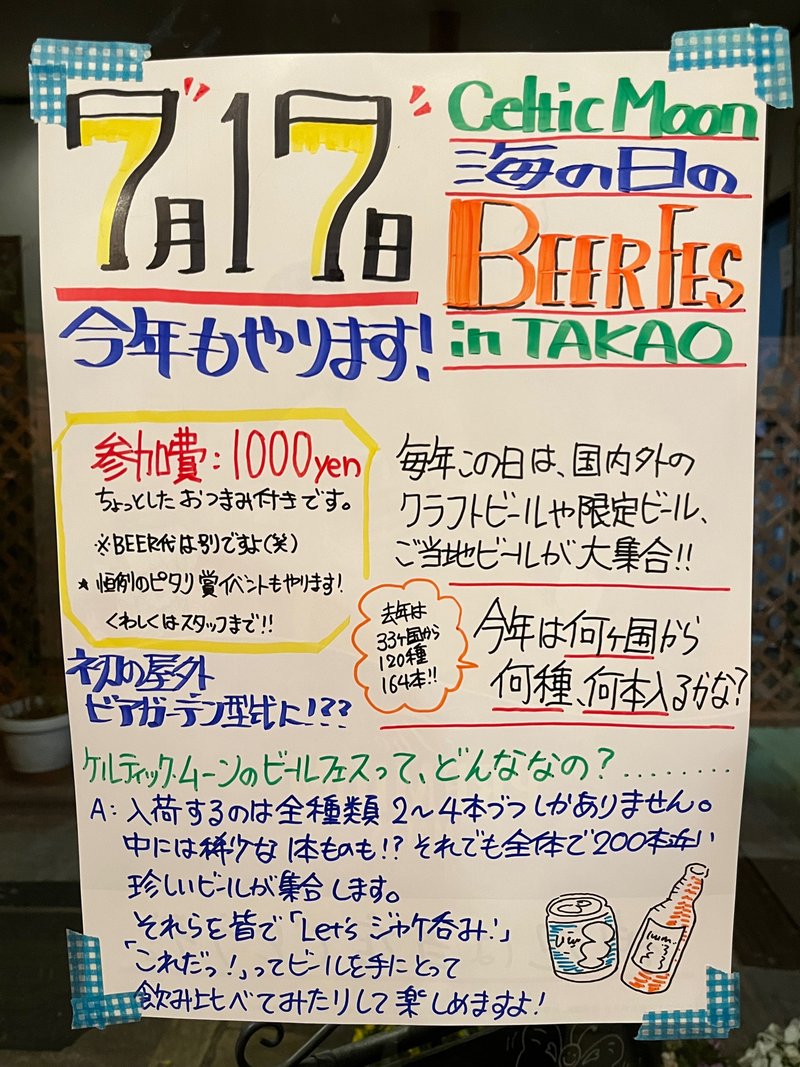 7月17日
今年もやります!
Celtic Moon
海の日の
BEER FES
in TAKAO
参加費:1000yen
ちょっとしたおつまみ付きです。
※BEER代は別ですよ(笑)
* 恒例のピタリ賞イベントもやります!
くわしくはスタッフまで!!
初の屋外
ビアガーデン型式に!??
毎年この日は、国内外の
クラフトビールや限定ビール、
ご当地ビールが大集合!!
去年は
33ヶ国から
120種
164本!!
今年は何ヶ国から
何種、何本入るかな?
ケルティック・ムーンのビールフェスって、どんななの?........
A:入荷するのは全種類2〜4本づつしかありません。
中には稀少な1本ものも!?それでも全体で200本近い
珍しいビールが集合します。
それらを皆で「Let's ジャケ呑み!」
「これだっ!」ってビールを手にとって
飲み比べてみたりして楽しめますよ!